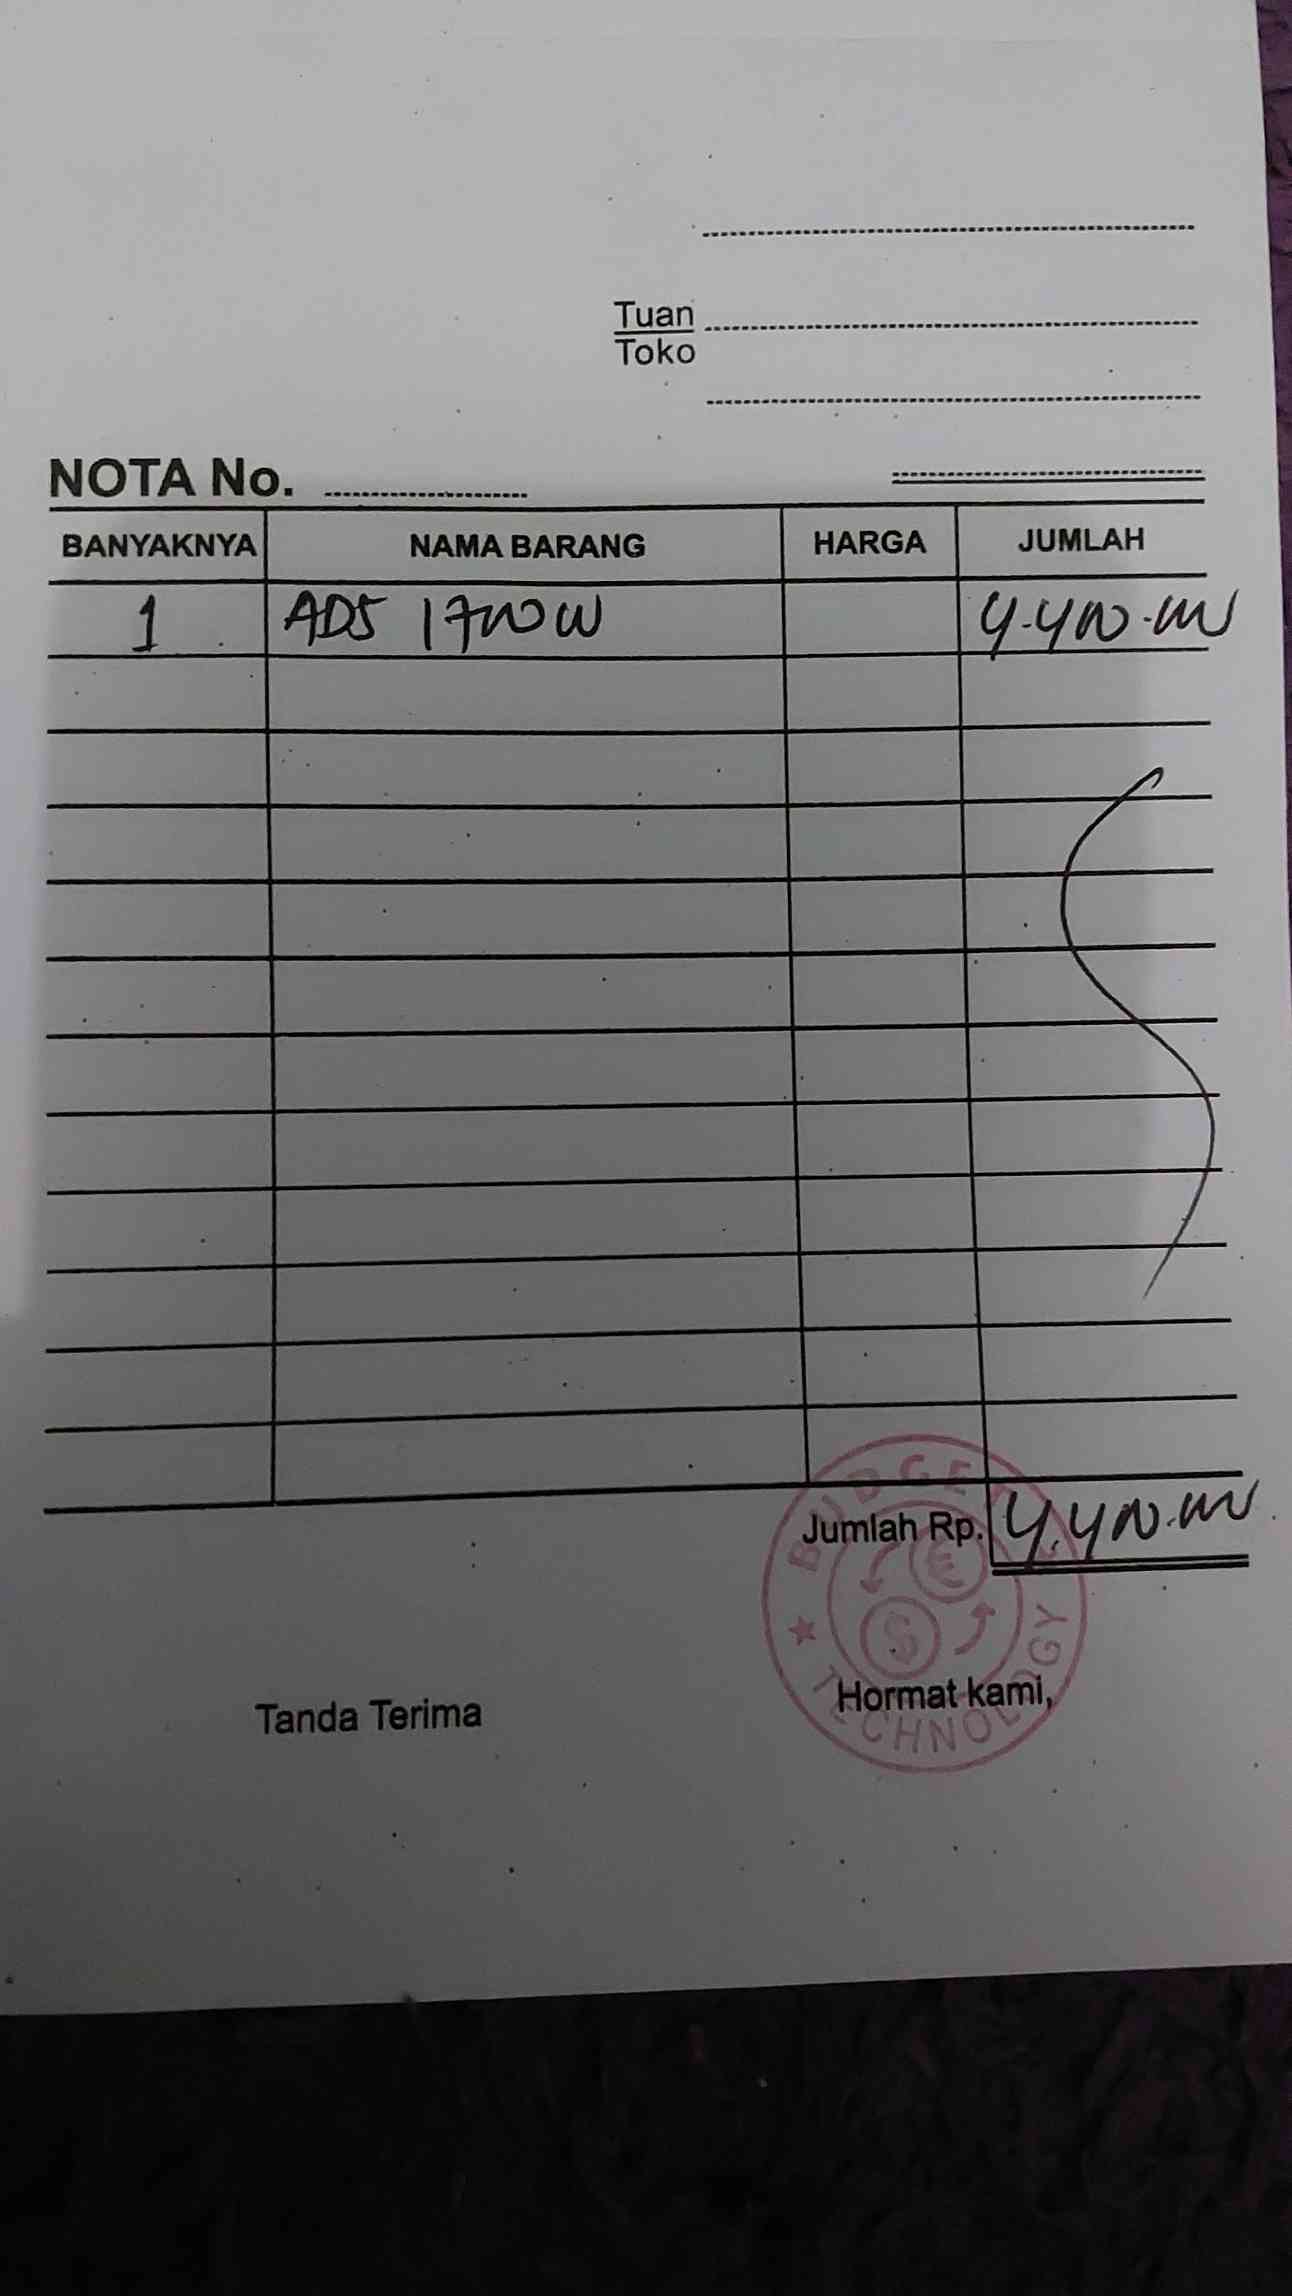 Tuan
Toko
NOTA No.
BANYAKNYA NAMA BARANG HARGA JUMLAH
1 ADS 1700W 4.400.000
Jumlah Rp. 4.400.000
BUDGET
TECHNOLOGY
Tanda Terima Hormat kami,